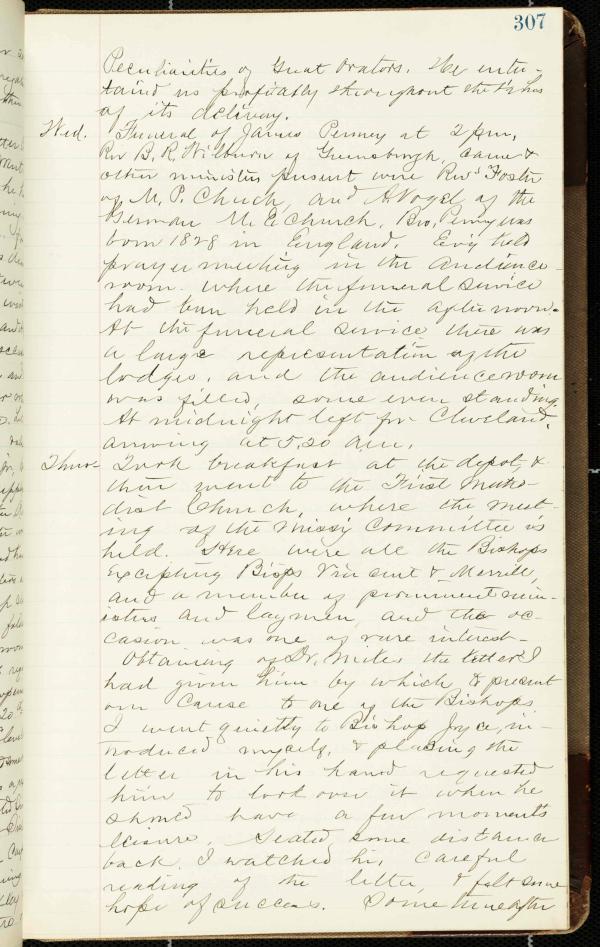 307
Peculiarities of Great Orators. He enter-
taind us profitably throughout the
of its delivery.
Wed. Funeral of James Penney at 2 p.m.
Rev B. R. Wilburn of Greensburgh, came &
other ministers present were Revs Foster
of M. P. Chuch, and A. Vogel of the
German M. E. Church. Bro. Penny was
born 1828 in England. Ev'g held
prayer meeting in the audience-
room where the funeral service
had been held in the afternoon.
At the funeral service there was
a large representation of the
lodges, and the audience room
was filled, some even standing.
At midnight left for Cleveland,
arriving at 5.20 a.m.
Thur- Took breakfast at the depot, &
then went to the First Metho-
dist Church, where the meet-
ing of the Missy Committee is
held. Here were all the Bishops
excepting Bisps Vincent & Merrill,
and a member of prominent min-
isters and laymen, and the oc-
casion was one of rare interest-
Obtaining of Dr. Miles the letter I
had given him by which to present
our cause to one of the Bishops
I went quietly to Bishop Joyce, in-
troduced myself, & placing the
letter in his hand requested
him to look over it when he
should have a few moment's
leisure. Seated some distance
back, I watched his careful
reading of the letter, & felt some
hope of success. Some time after